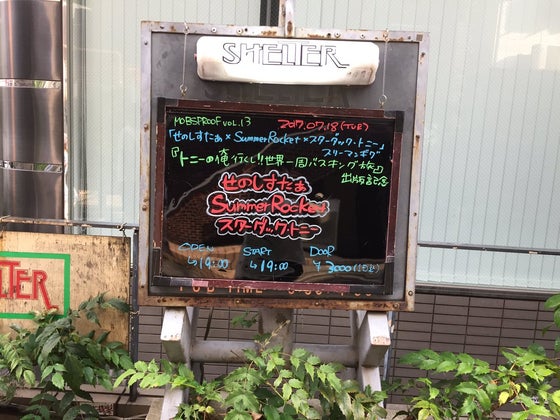 SHELTER
MOBSPROOF VOL.13 2017.07.18(TUE)
「せのしすたぁ×SummerRocket×スターダック・トニー」
スリーマンギグ
『トニーの俺行くし!!世界一周バスキング旅』
出版記念
せのしすたぁ
SummerRocket
スターダック・トニー
OPEN START DOOR
↳19:00 ↳19:00 ¥3000